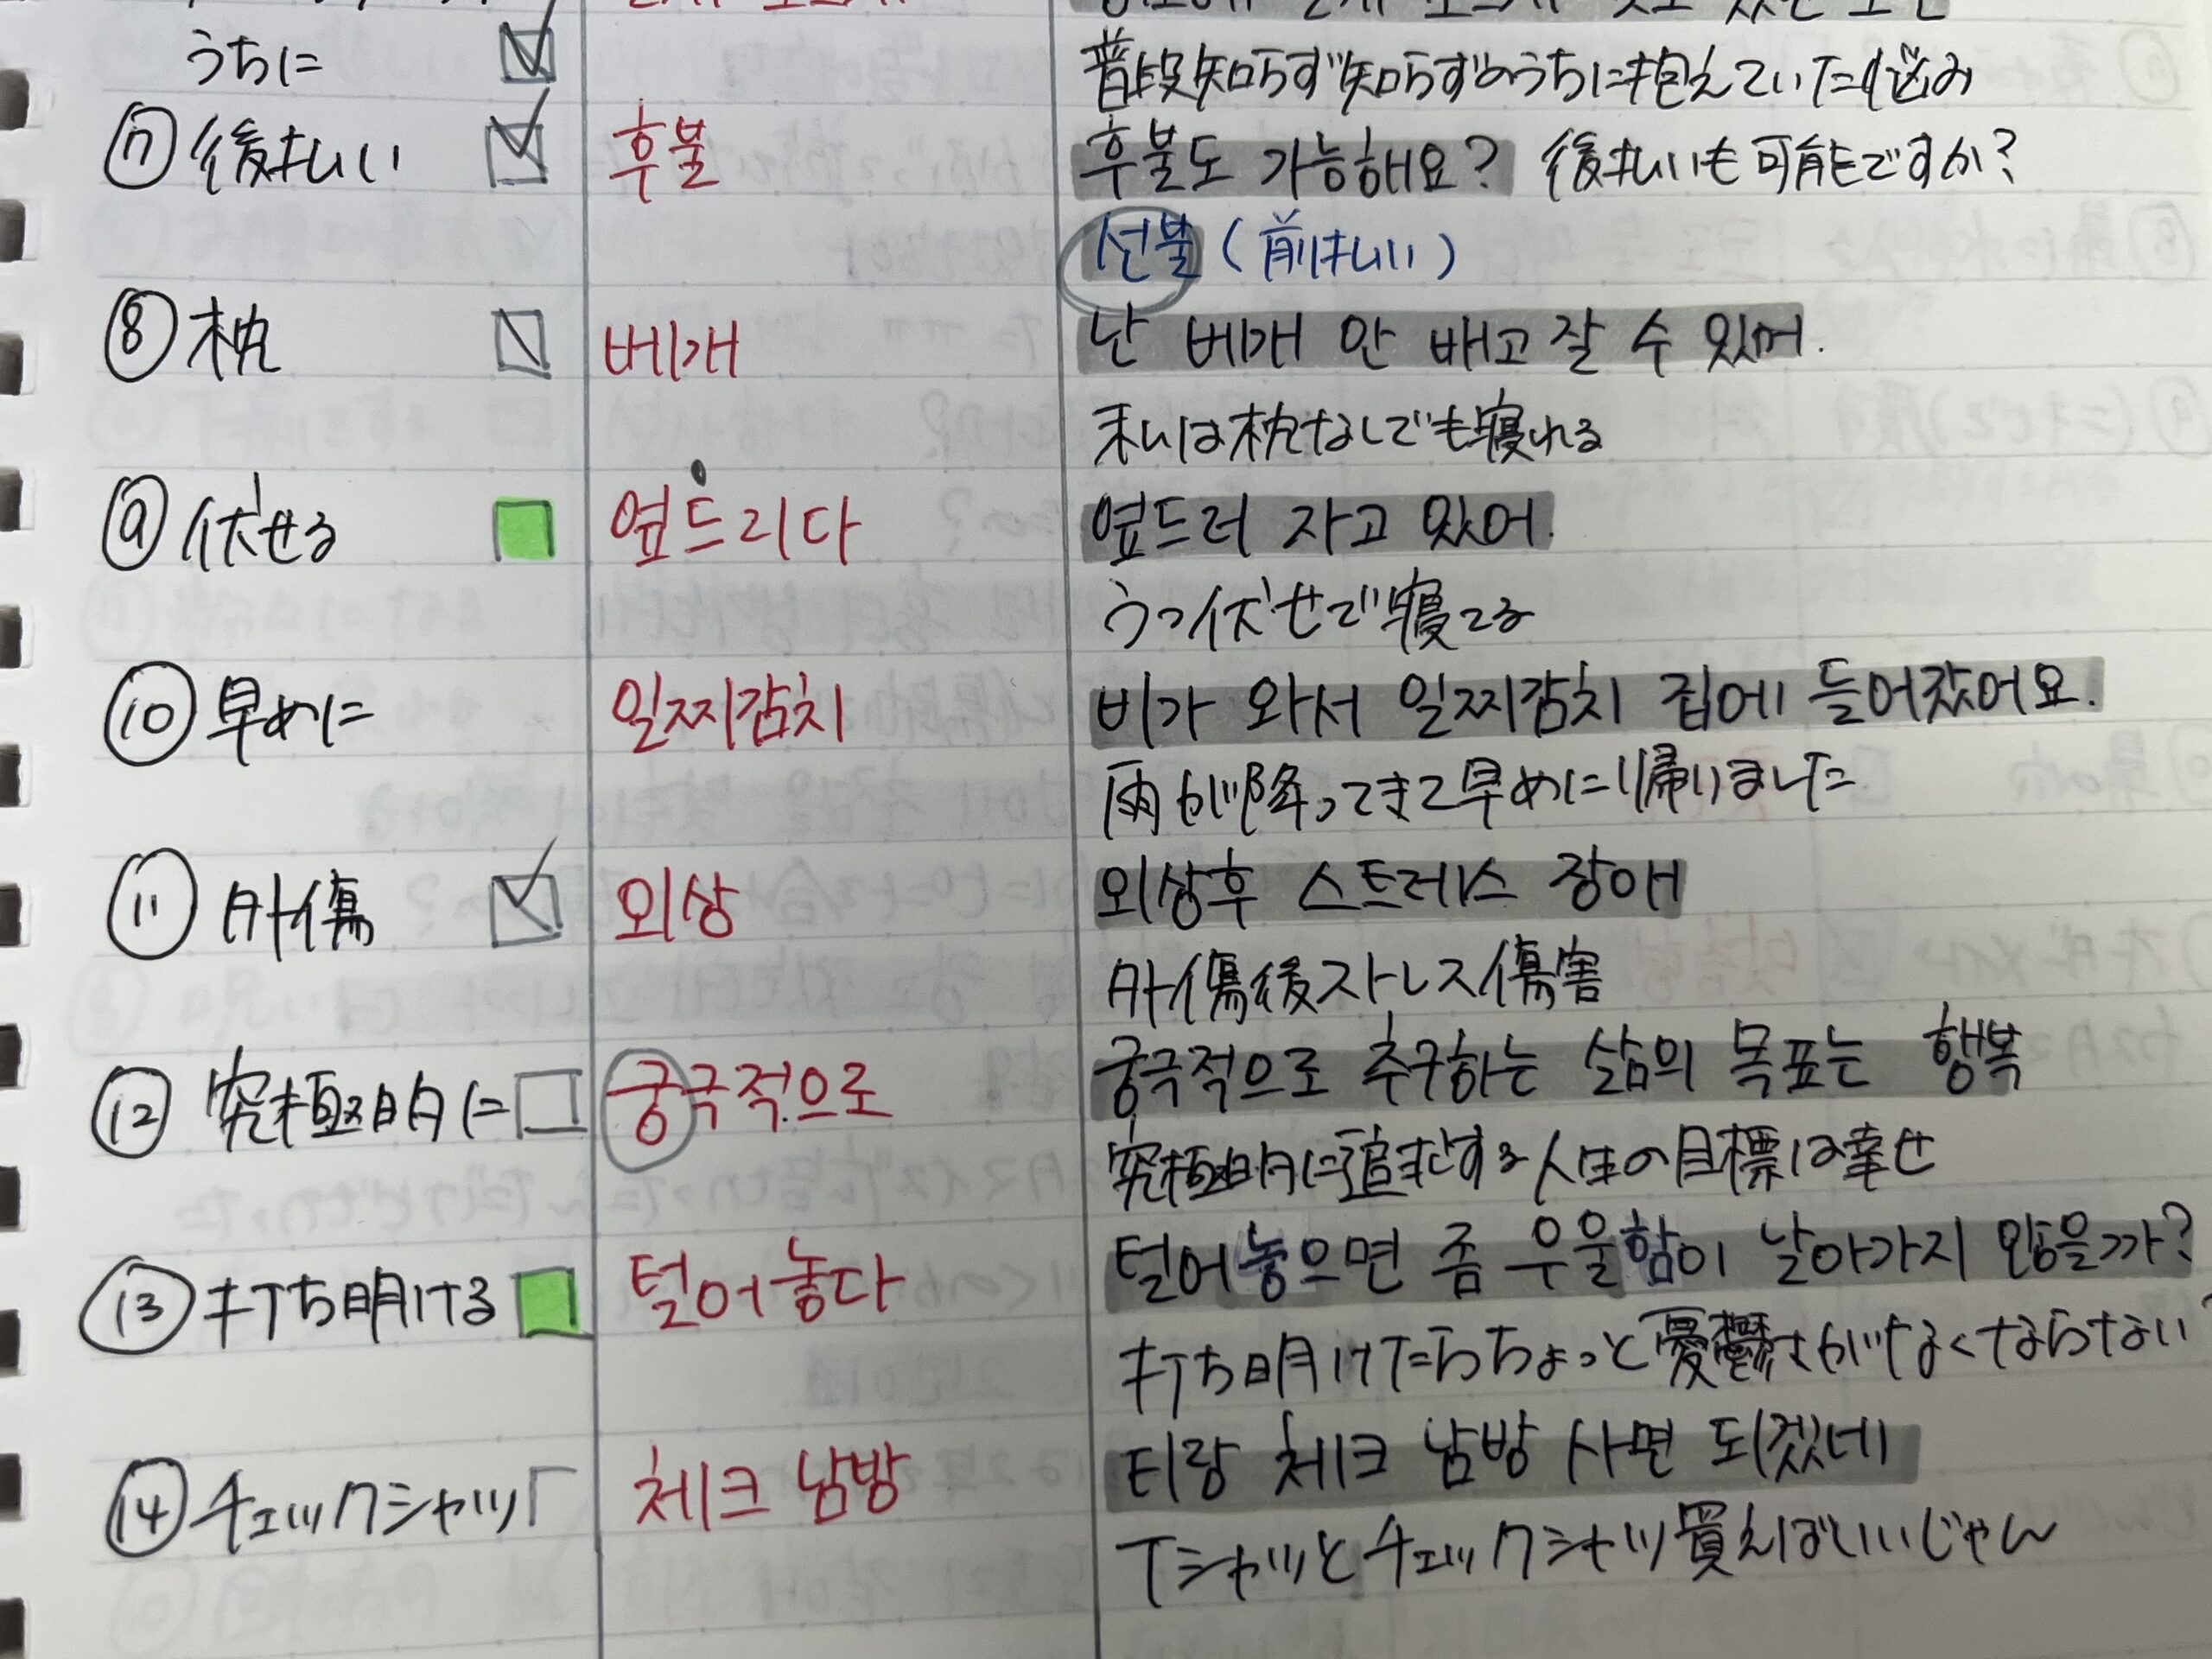 うちに
普段知らず知らずのうちに抱えていた悩み
⑦ 後払い 후불 후불도 가능해요? 後払いも可能ですか?
선불 (前払い)
⑧ 枕 베개 난 베개 안 배고 잘 수 있어.
私は枕なしでも寝れる
⑨ 伏せる 엎드리다 엎드려 자고 있어.
うつ伏せで寝てる
⑩ 早めに 일찌감치 비가 와서 일찌감치 집에 들어갔어요.
雨が降ってきて早めに帰りました
⑪ 外傷 외상 외상후 스트레스 장애
外傷後ストレス傷害
⑫ 究極的に 궁극적으로 궁극적으로 추구하는 삶의 목표는 행복
究極的に追求する人生の目標は幸せ
⑬ 打ち明ける 털어놓다 털어놓으면 좀 우울함이 날아가지 않을까?
打ち明けたらちょっと憂鬱さがなくならない?
⑭ チェックシャツ 체크 남방 티랑 체크 남방 사면 되겠네
Tシャツとチェックシャツ買えばいいじゃん